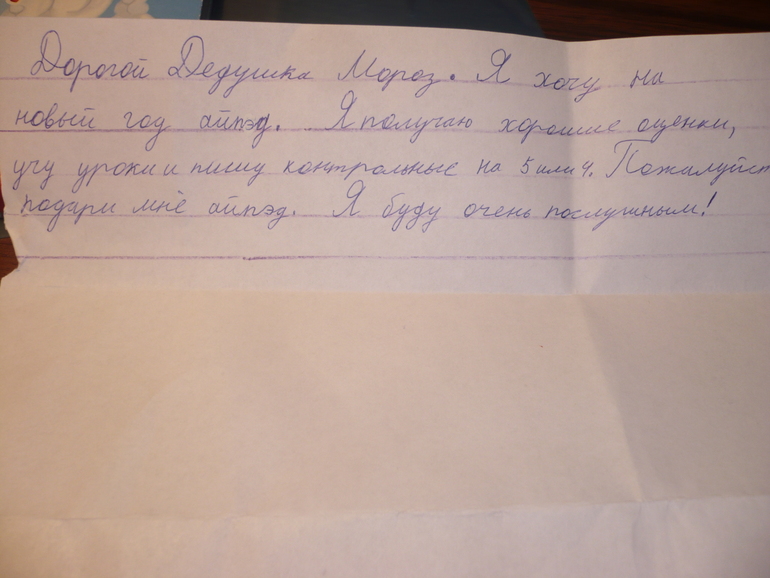 Дорогой Дедушка Мороз. Я хочу на
новый год айпэд. Я получаю хорошие оценки,
учу уроки и пишу контрольные на 5 или 4. Пожалуйст
подари мне айпэд. Я буду очень послушным!